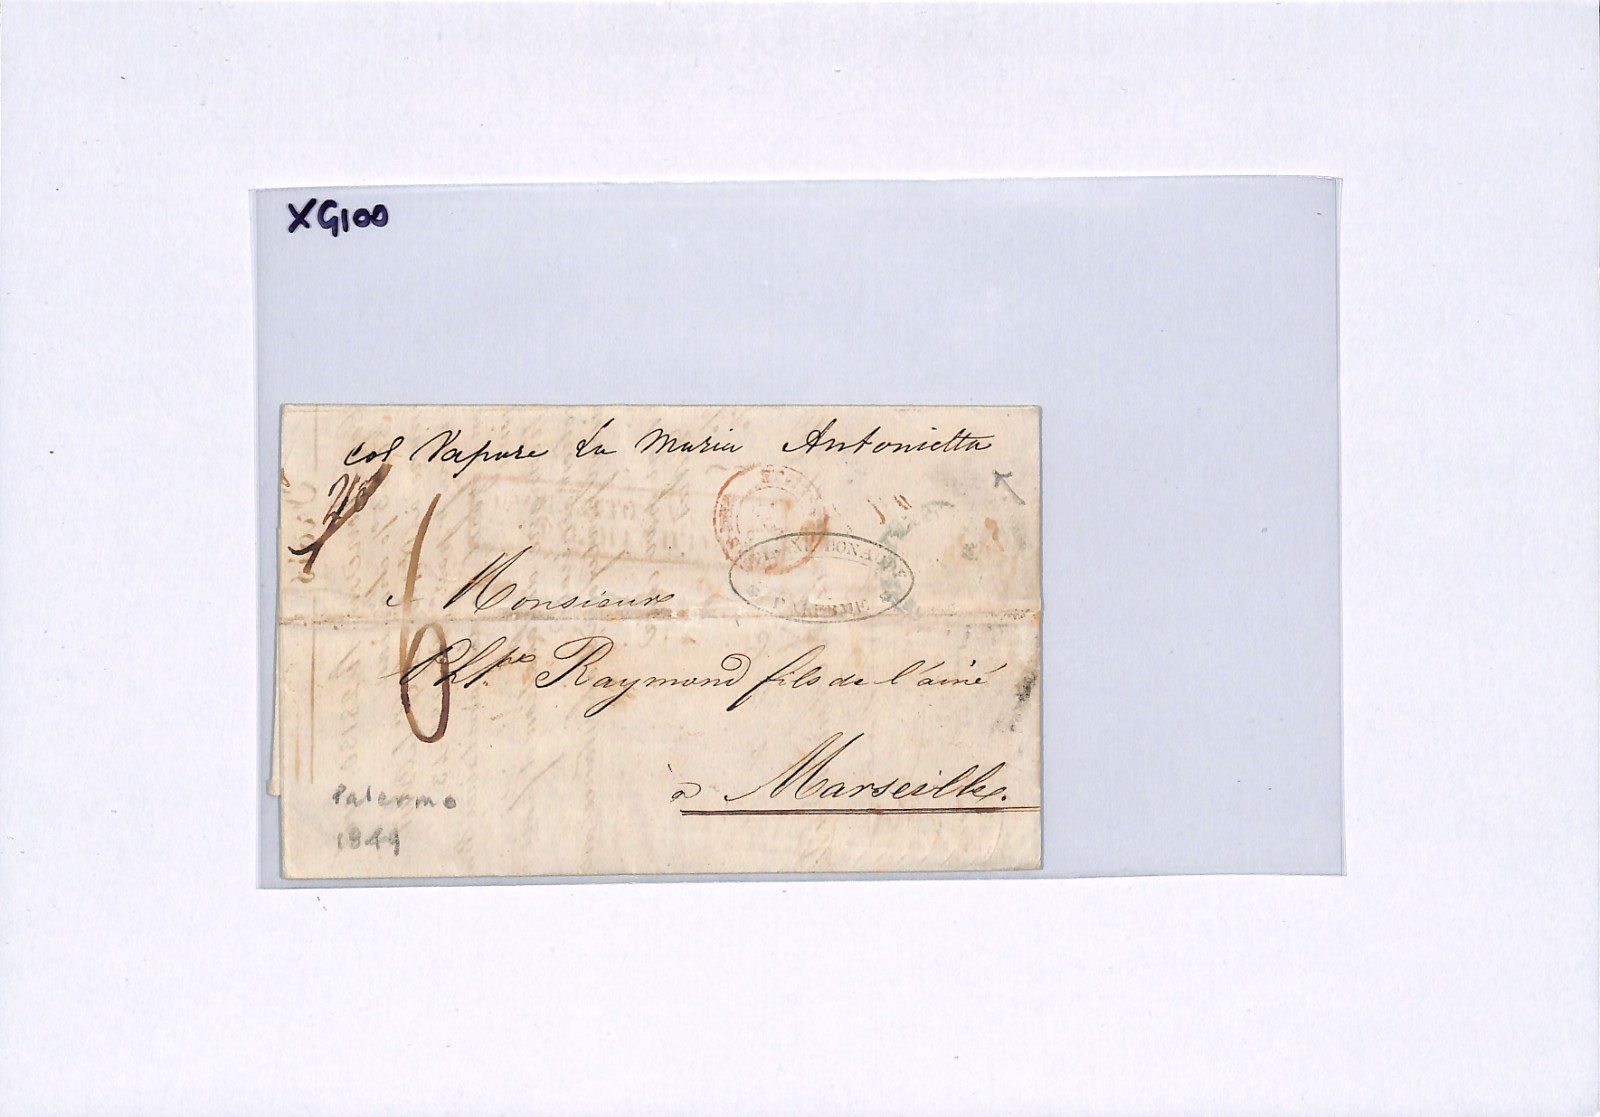 XG100
col Vapore La Maria Antonietta
BONA
PALERME
Monsieur
Phlpe Raymond fils de l'ainé
à Marseille.
6
Palermo
1849